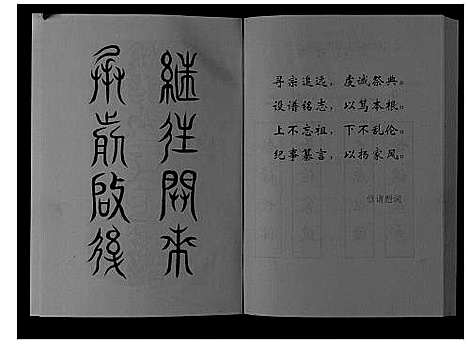 承前啟後
繼往開來
寻宗追远，虔诚祭典。
设谱铭志，以笃本根。
上不忘祖，下不乱伦。
纪事纂言，以扬家风。